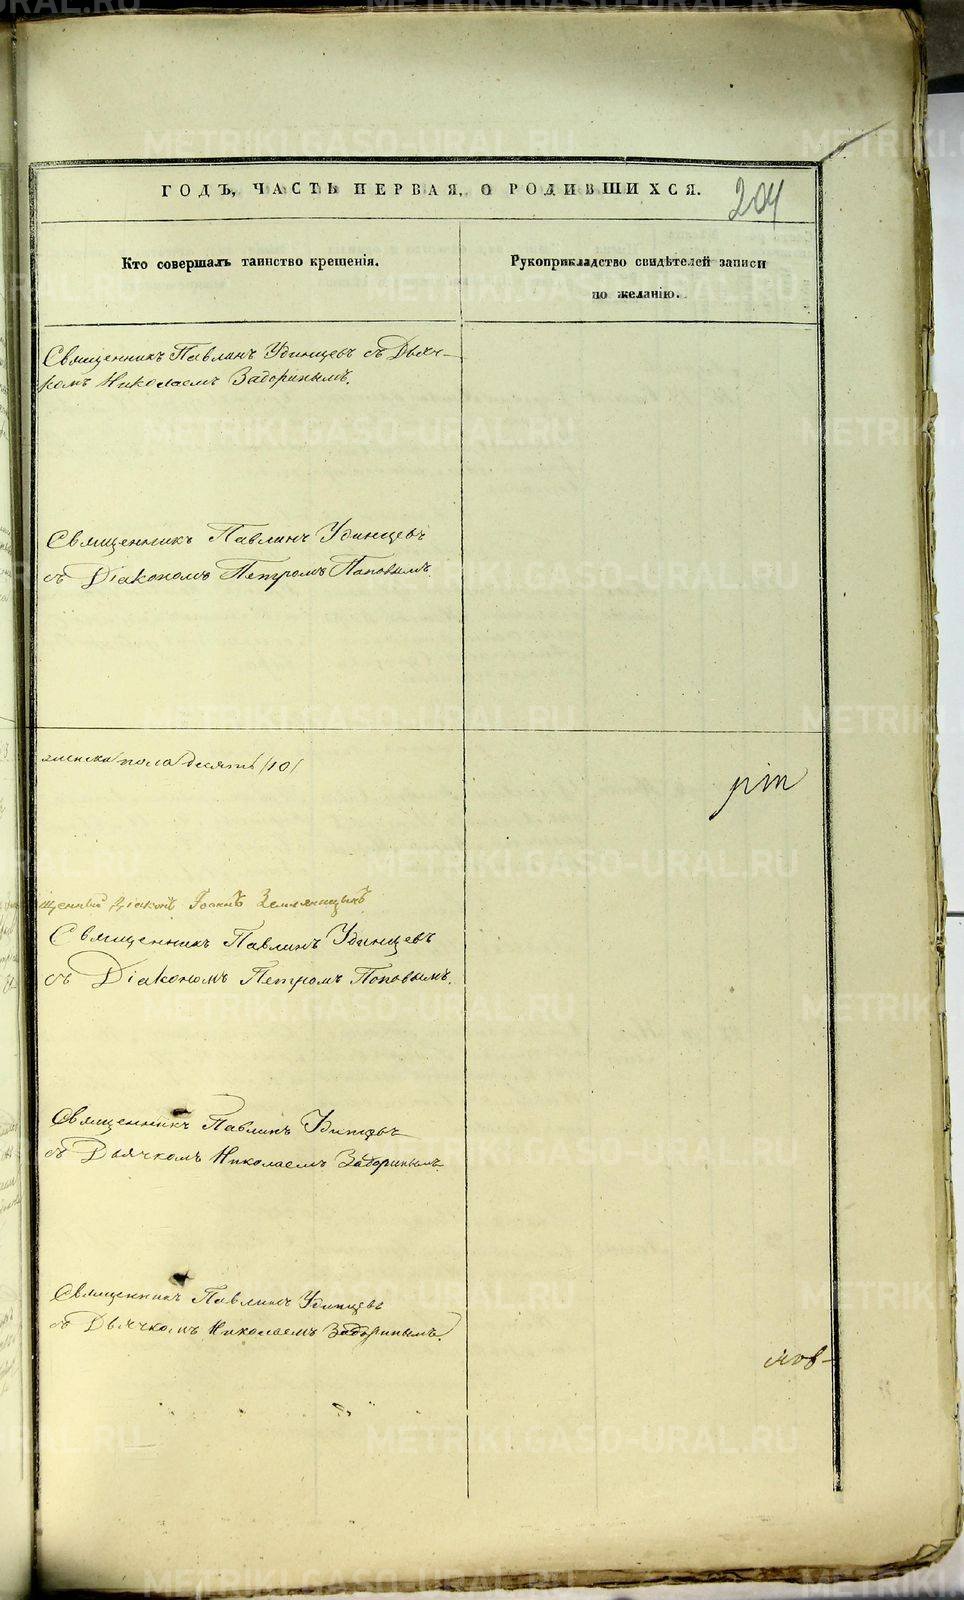 ГОДЪ, ЧАСТЬ ПЕРВАЯ, О РОДИВШИХСЯ.
204
Кто совершалъ таинство крещенія.
Рукоприкладство свидѣтелей записи
по желанію.
Священникъ Павлинъ Удинцевъ съ Дьяч-
комъ Николаемъ Задоринымъ.
Священникъ Павлинъ Удинцевъ
съ Діакономъ Петромъ Поповымъ.
женска пола десять /10/
Діаконъ Іоаннъ Земляницынъ
Священникъ Павлинъ Удинцевъ
съ Діакономъ Петромъ Поповымъ.
Священникъ Павлинъ Удинцевъ
съ Дьячкомъ Николаемъ Задоринымъ.
Священникъ Павлинъ Удинцевъ
съ Дьячкомъ Николаемъ Задоринымъ.
METRIKI.GASO-URAL.RU